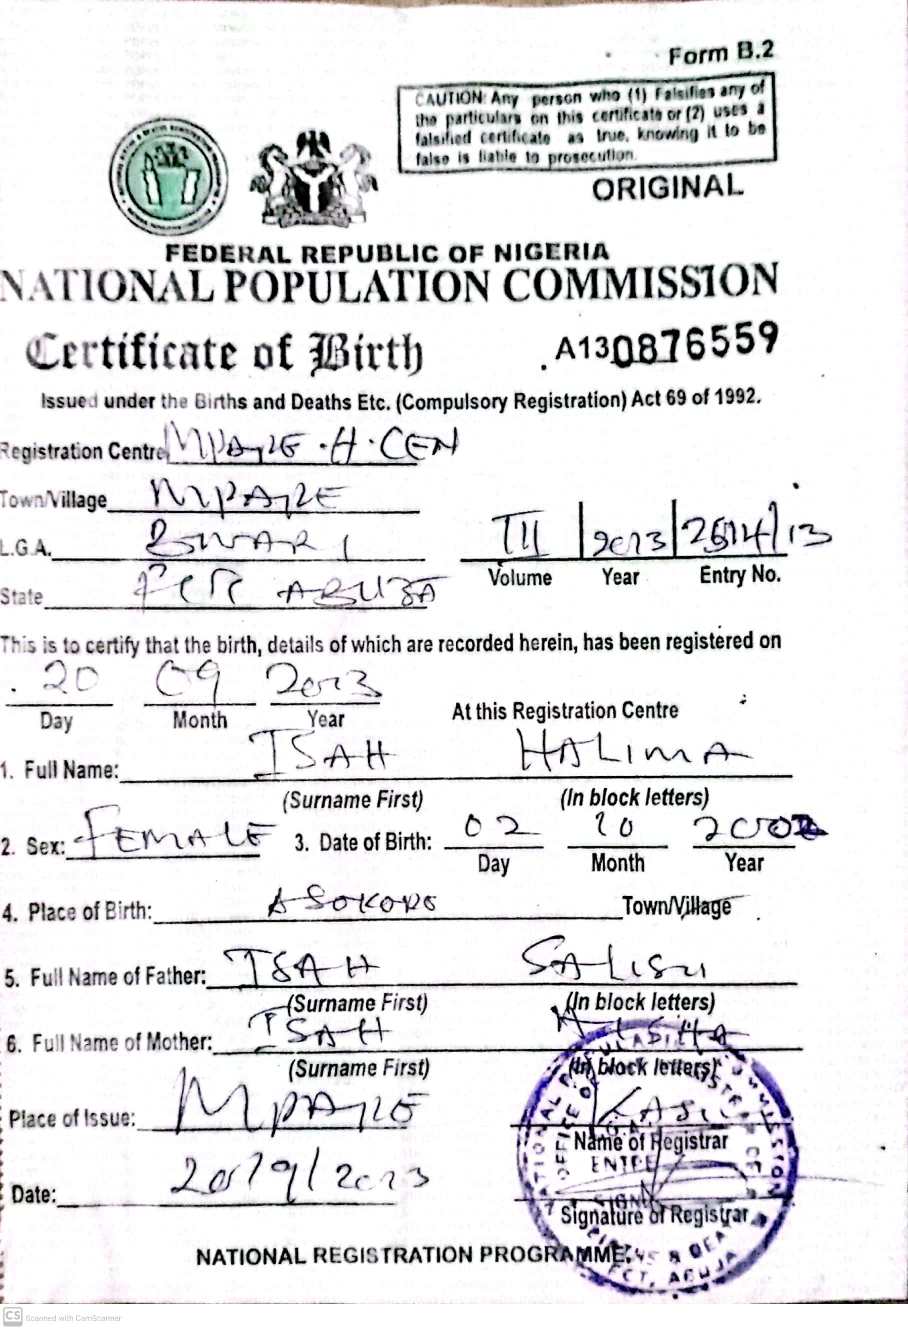 Form B.2
CAUTION: Any person who (1) Falsifies any of
the particulars on this certificate or (2) uses a
falsified certificate as true, knowing it to be
false is liable to prosecution.
ORIGINAL
FEDERAL REPUBLIC OF NIGERIA
NATIONAL POPULATION COMMISSION
Certificate of Birth A130876559
Issued under the Births and Deaths Etc. (Compulsory Registration) Act 69 of 1992.
Registration Centre MPAPE. H. CEN
Town/Village MPAPE
L.G.A. BWARI III 2013 2614/13
Volume Year Entry No.
State FCT ABUJA
This is to certify that the birth, details of which are recorded herein, has been registered on
20 09 2013
Day Month Year At this Registration Centre
1. Full Name: ISAH HALIMA
(Surname First) (In block letters)
2. Sex: FEMALE 3. Date of Birth: 02 10 2002
Day Month Year
4. Place of Birth: ASOKORO Town/Village
5. Full Name of Father: ISAH SALISU
(Surname First) (In block letters)
6. Full Name of Mother: ISAH
(Surname First) (In block letters)
Place of Issue: MPAPE
Name of Registrar
Date: 20/9/2013
Signature of Registrar
NATIONAL REGISTRATION PROGRAMME
FCT, ABUJA
CS Scanned with CamScanner